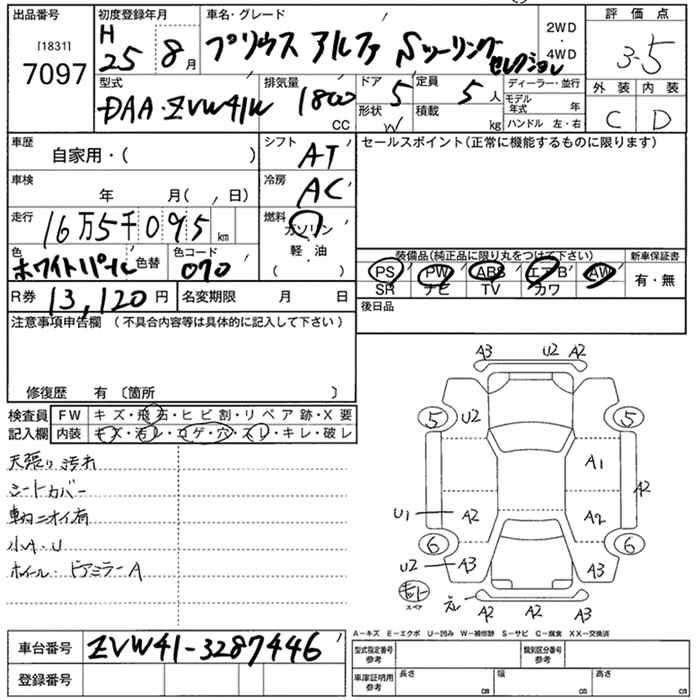 出品番号
[1831]
7097
初度登録年月
H
25 8月
車名・グレード
プリウス アルファ Sツーリング
セレクション
2WD
・
4WD
評価点
3.5
外装 内装
C D
型式
DAA-ZVW41W
排気量
1800
CC
ドア
5
形状
W
定員
5人
積載
kg
ディーラー・並行
モデル年式 年
ハンドル 左・右
車歴
自家用・( )
車検
年 月( 日)
走行
16万5千095km
色
ホワイトパール
色替
色コード
070
シフト
AT
冷房
AC
燃料
ガソリン
・
軽油
( )
R券 13,120円
名変期限 月 日
セールスポイント(正常に機能するものに限ります)
装備品(純正品に限り丸をつけて下さい)
PS PW ABS エアB AW
SR ナビ TV カワ
新車保証書
有・無
後日品
注意事項申告欄 (不具合内容等は具体的に記入して下さい)
修復歴 有 〔箇所 〕
検査員
記入欄
FW キズ・飛石・ヒビ割・リペア跡・X要
内装 キズ・汚レ・コゲ・穴・スレ・キレ・破レ
天張り汚れ
シートカバー
車内ニオイ有
小A・U
ホイール・ドアミラーA
A3 U2 A2
5 U2 5
A1
A2
U1 A2 A2
6 6
U2 A3 A3
キット
スペア
A2 A2 A2
A－キズ E－エクボ U－凹み W－補修跡 S－サビ C－腐食 XX－交換済
車台番号 ZVW41-3287446
登録番号
型式指定番号
参考
類別区分番号
参考
車庫証明用
参考
長さ cm
幅 cm
高さ cm